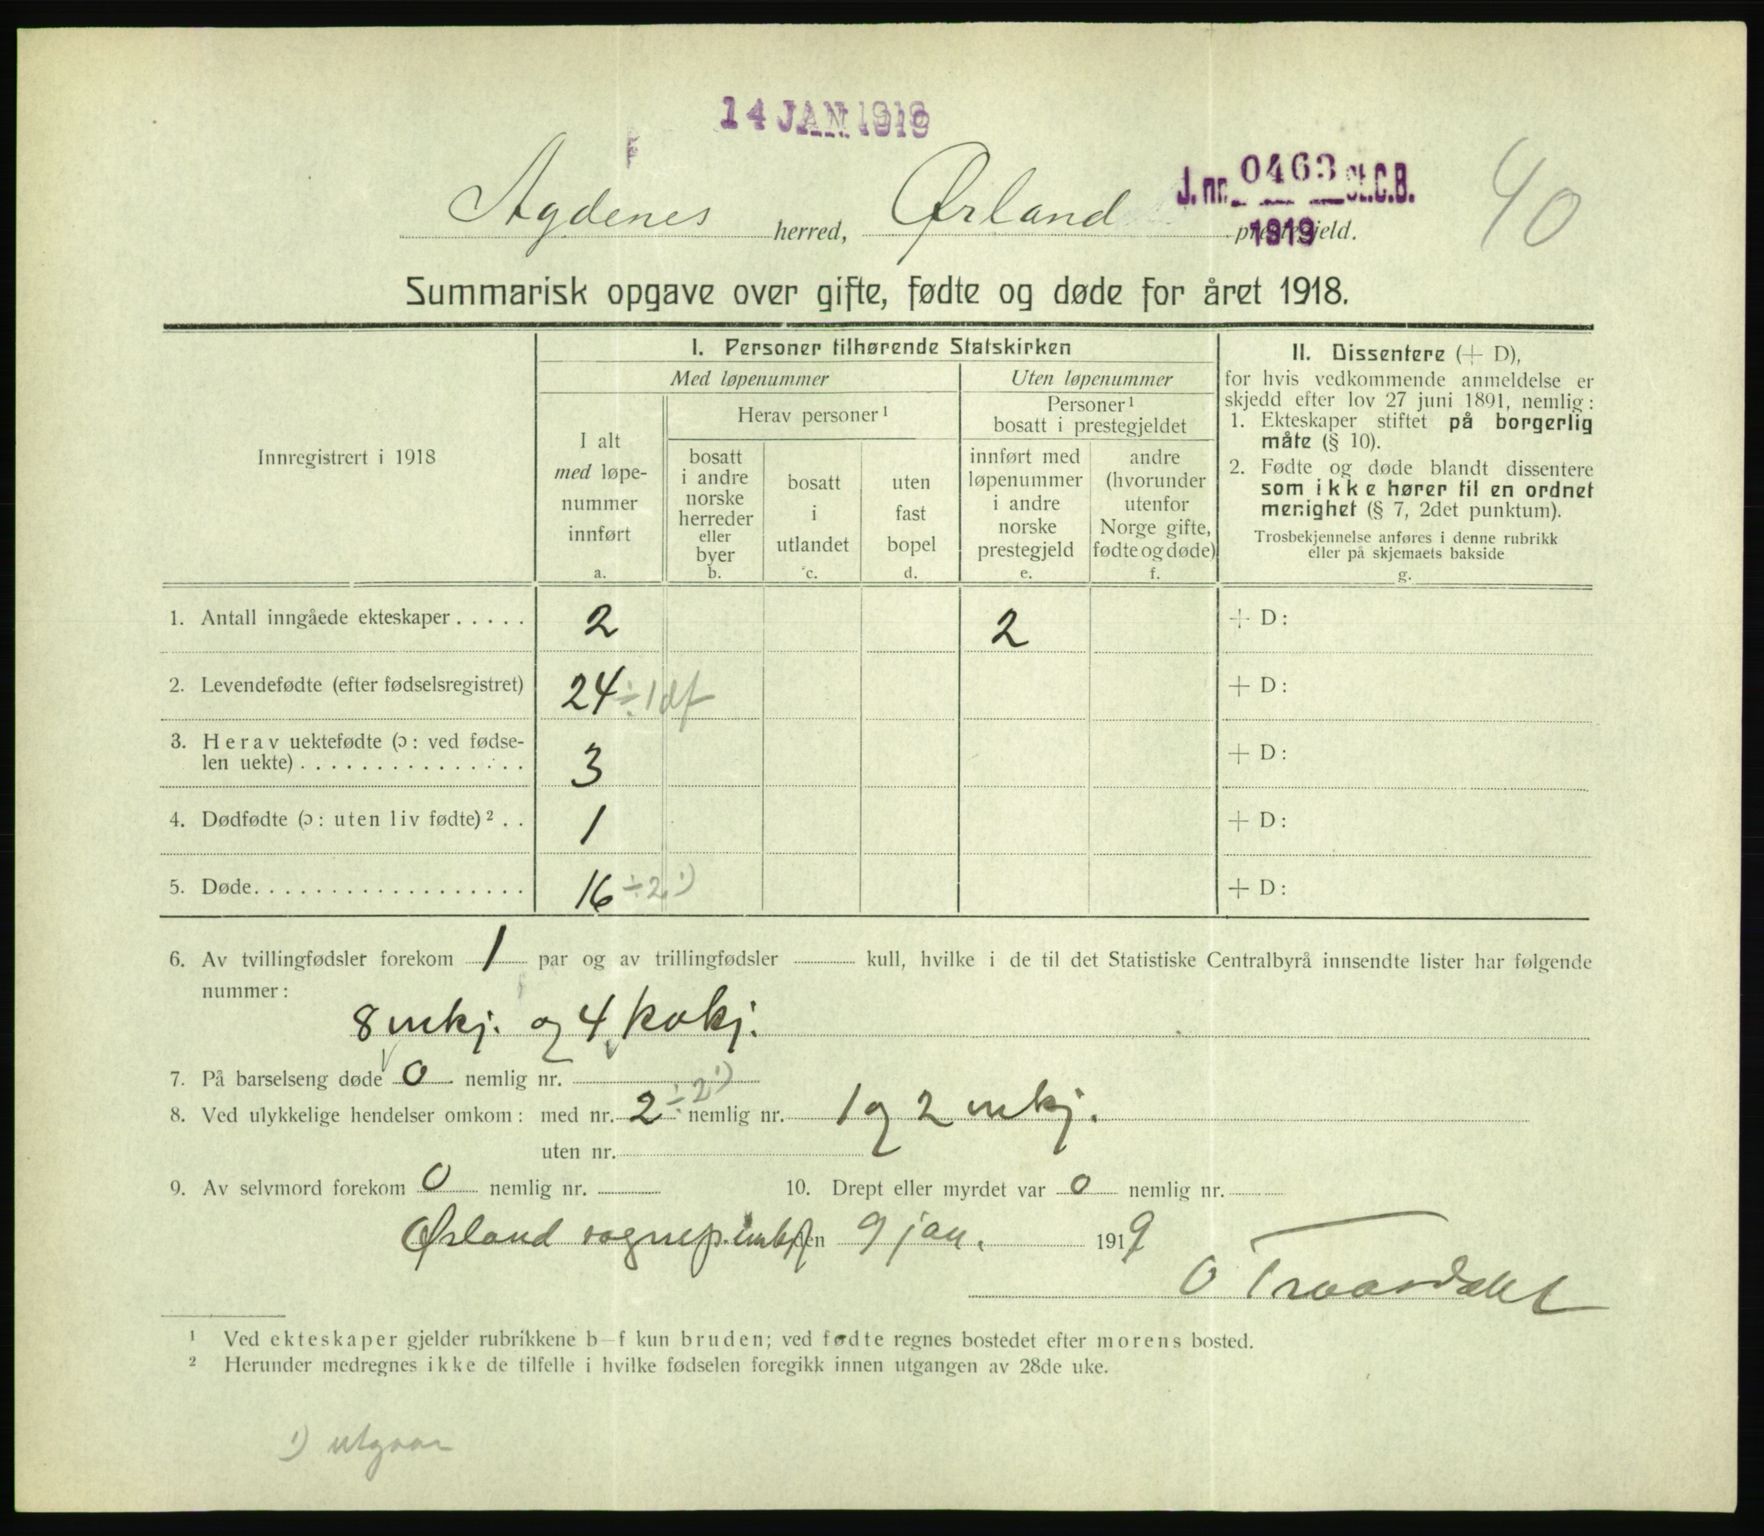 14 JAN 1919
J. nr. 0463 St.C.B.
1919
40
Agdenes herred, Ørland prestegjeld.
Summarisk opgave over gifte, fødte og døde for året 1918.
Innregistrert i 1918
I. Personer tilhørende Statskirken
Med løpenummer
Uten løpenummer
I alt
med løpe-
nummer
innført
a.
Herav personer ¹
bosatt
i andre
norske
herreder
eller
byer
b.
bosatt
i
utlandet
c.
uten
fast
bopel
d.
Personer ¹
bosatt i prestegjeldet
innført med
løpenummer
i andre
norske
prestegjeld
e.
andre
(hvorunder
utenfor
Norge gifte,
fødte og døde)
f.
II. Dissentere (+ D),
for hvis vedkommende anmeldelse er
skjedd efter lov 27 juni 1891, nemlig:
1. Ekteskaper stiftet på borgerlig
måte (§ 10).
2. Fødte og døde blandt dissentere
som ikke hører til en ordnet
menighet (§ 7, 2det punktum).
Trosbekjennelse anføres i denne rubrikk
eller på skjemaets bakside
g.
1. Antall inngåede ekteskaper . . . . . 2 2 + D:
2. Levendefødte (efter fødselsregistret) 24 ÷ 1 df + D:
3. Herav uektefødte (ɔ: ved fødse-
len uekte) . . . . . . . . . . . . . . . 3 + D:
4. Dødfødte (ɔ: uten liv fødte) ² . . 1 + D:
5. Døde. . . . . . . . . . . . . . . . . . 16 ÷ 2 ¹) + D:
6. Av tvillingfødsler forekom 1 par og av trillingfødsler kull, hvilke i de til det Statistiske Centralbyrå innsendte lister har følgende
nummer:
8 mkj. og 4 kvkj.
7. På barselseng døde 0 nemlig nr.
8. Ved ulykkelige hendelser omkom: med nr. 2 ÷ 2 ¹) nemlig nr. 1 og 2 mkj.
uten nr.
9. Av selvmord forekom 0 nemlig nr. 10. Drept eller myrdet var 0 nemlig nr.
Ørland sognep.emb. den 9 jan. 1919
¹ Ved ekteskaper gjelder rubrikkene b–f kun bruden; ved fødte regnes bostedet efter morens bosted.
² Herunder medregnes ikke de tilfelle i hvilke fødselen foregikk innen utgangen av 28de uke.
¹) utgaar